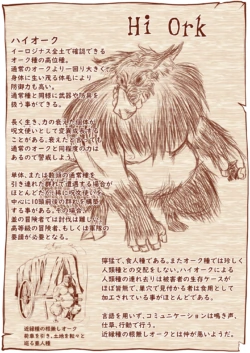 Hi Ork
ハイオーク
イーロジナス全土で確認できる
オーク種の高位種。
通常のオークより一回り大きくて
身体に生い茂る体毛により
防御力も高い。
通常種と同様に武器や防具を
扱う事ができる。
長く生き、力の衰えた個体が
呪文使いとして変異成長する
ことがある。衰えたと言っても
通常のオークと同程度の力は
あるので警戒しよう。
単体、または数頭の通常種を
引き連れた群れで遭遇する場合が
ほとんどだが、稀に呪文使いを
中心に10頭前後の群れを構築
する事がある。その場合、
並の冒険者では討伐は難しく
高等級の冒険者、もしくは軍隊の
要請が必要となる。
獰猛で、食人種である。またオーク種では珍しく
人類種との交配をしない。ハイオークによる
人類種の連れ去りは被害者の生存ケースが
ほぼ皆無で、巣穴で見付かる者は食用として
加工されている事がほとんどである。
言語を用いず、コミュニケーションは鳴き声、
仕草、行動で行う。
近縁種の根無しオークとは仲が悪いようだ。
近縁種の根無しオーク
荷車を引き、土地を転々と